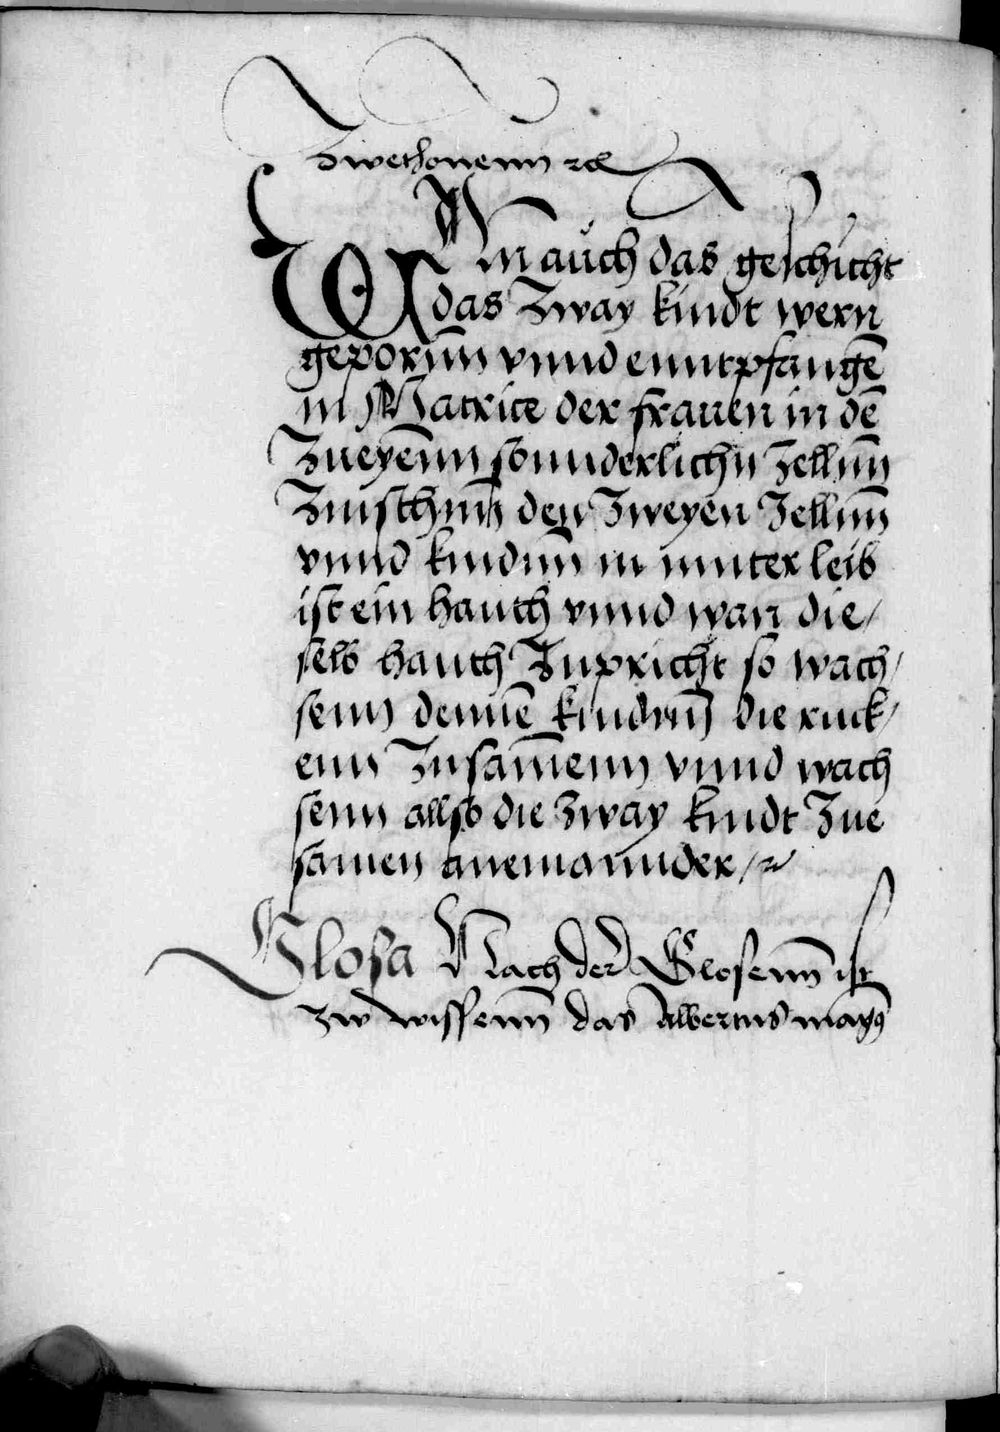 Zwethonenn ⁊c̄
WAn auch das geschicht
das Zway kindt wern
geporn̄n vnnd enntpfangē
in Matrice der frauen in dē
Zueyēnn sonnderlichn Zelln̄n
Zuischn̄n den Zweyen Zelln̄n
vnnd kindn̄n in muter leib
ist ein hauth vnnd wan die/
selb hauth Zupricht so wach/
senn dennē kindn̄n die ruck/
enn Zusam̄enn vnnd wach
senn allso die Zway kindt Zue
samen aneinannder /
Glosa Nach der Glosenn̄ ist
zw wissenn̄ das Albertus magꝰ